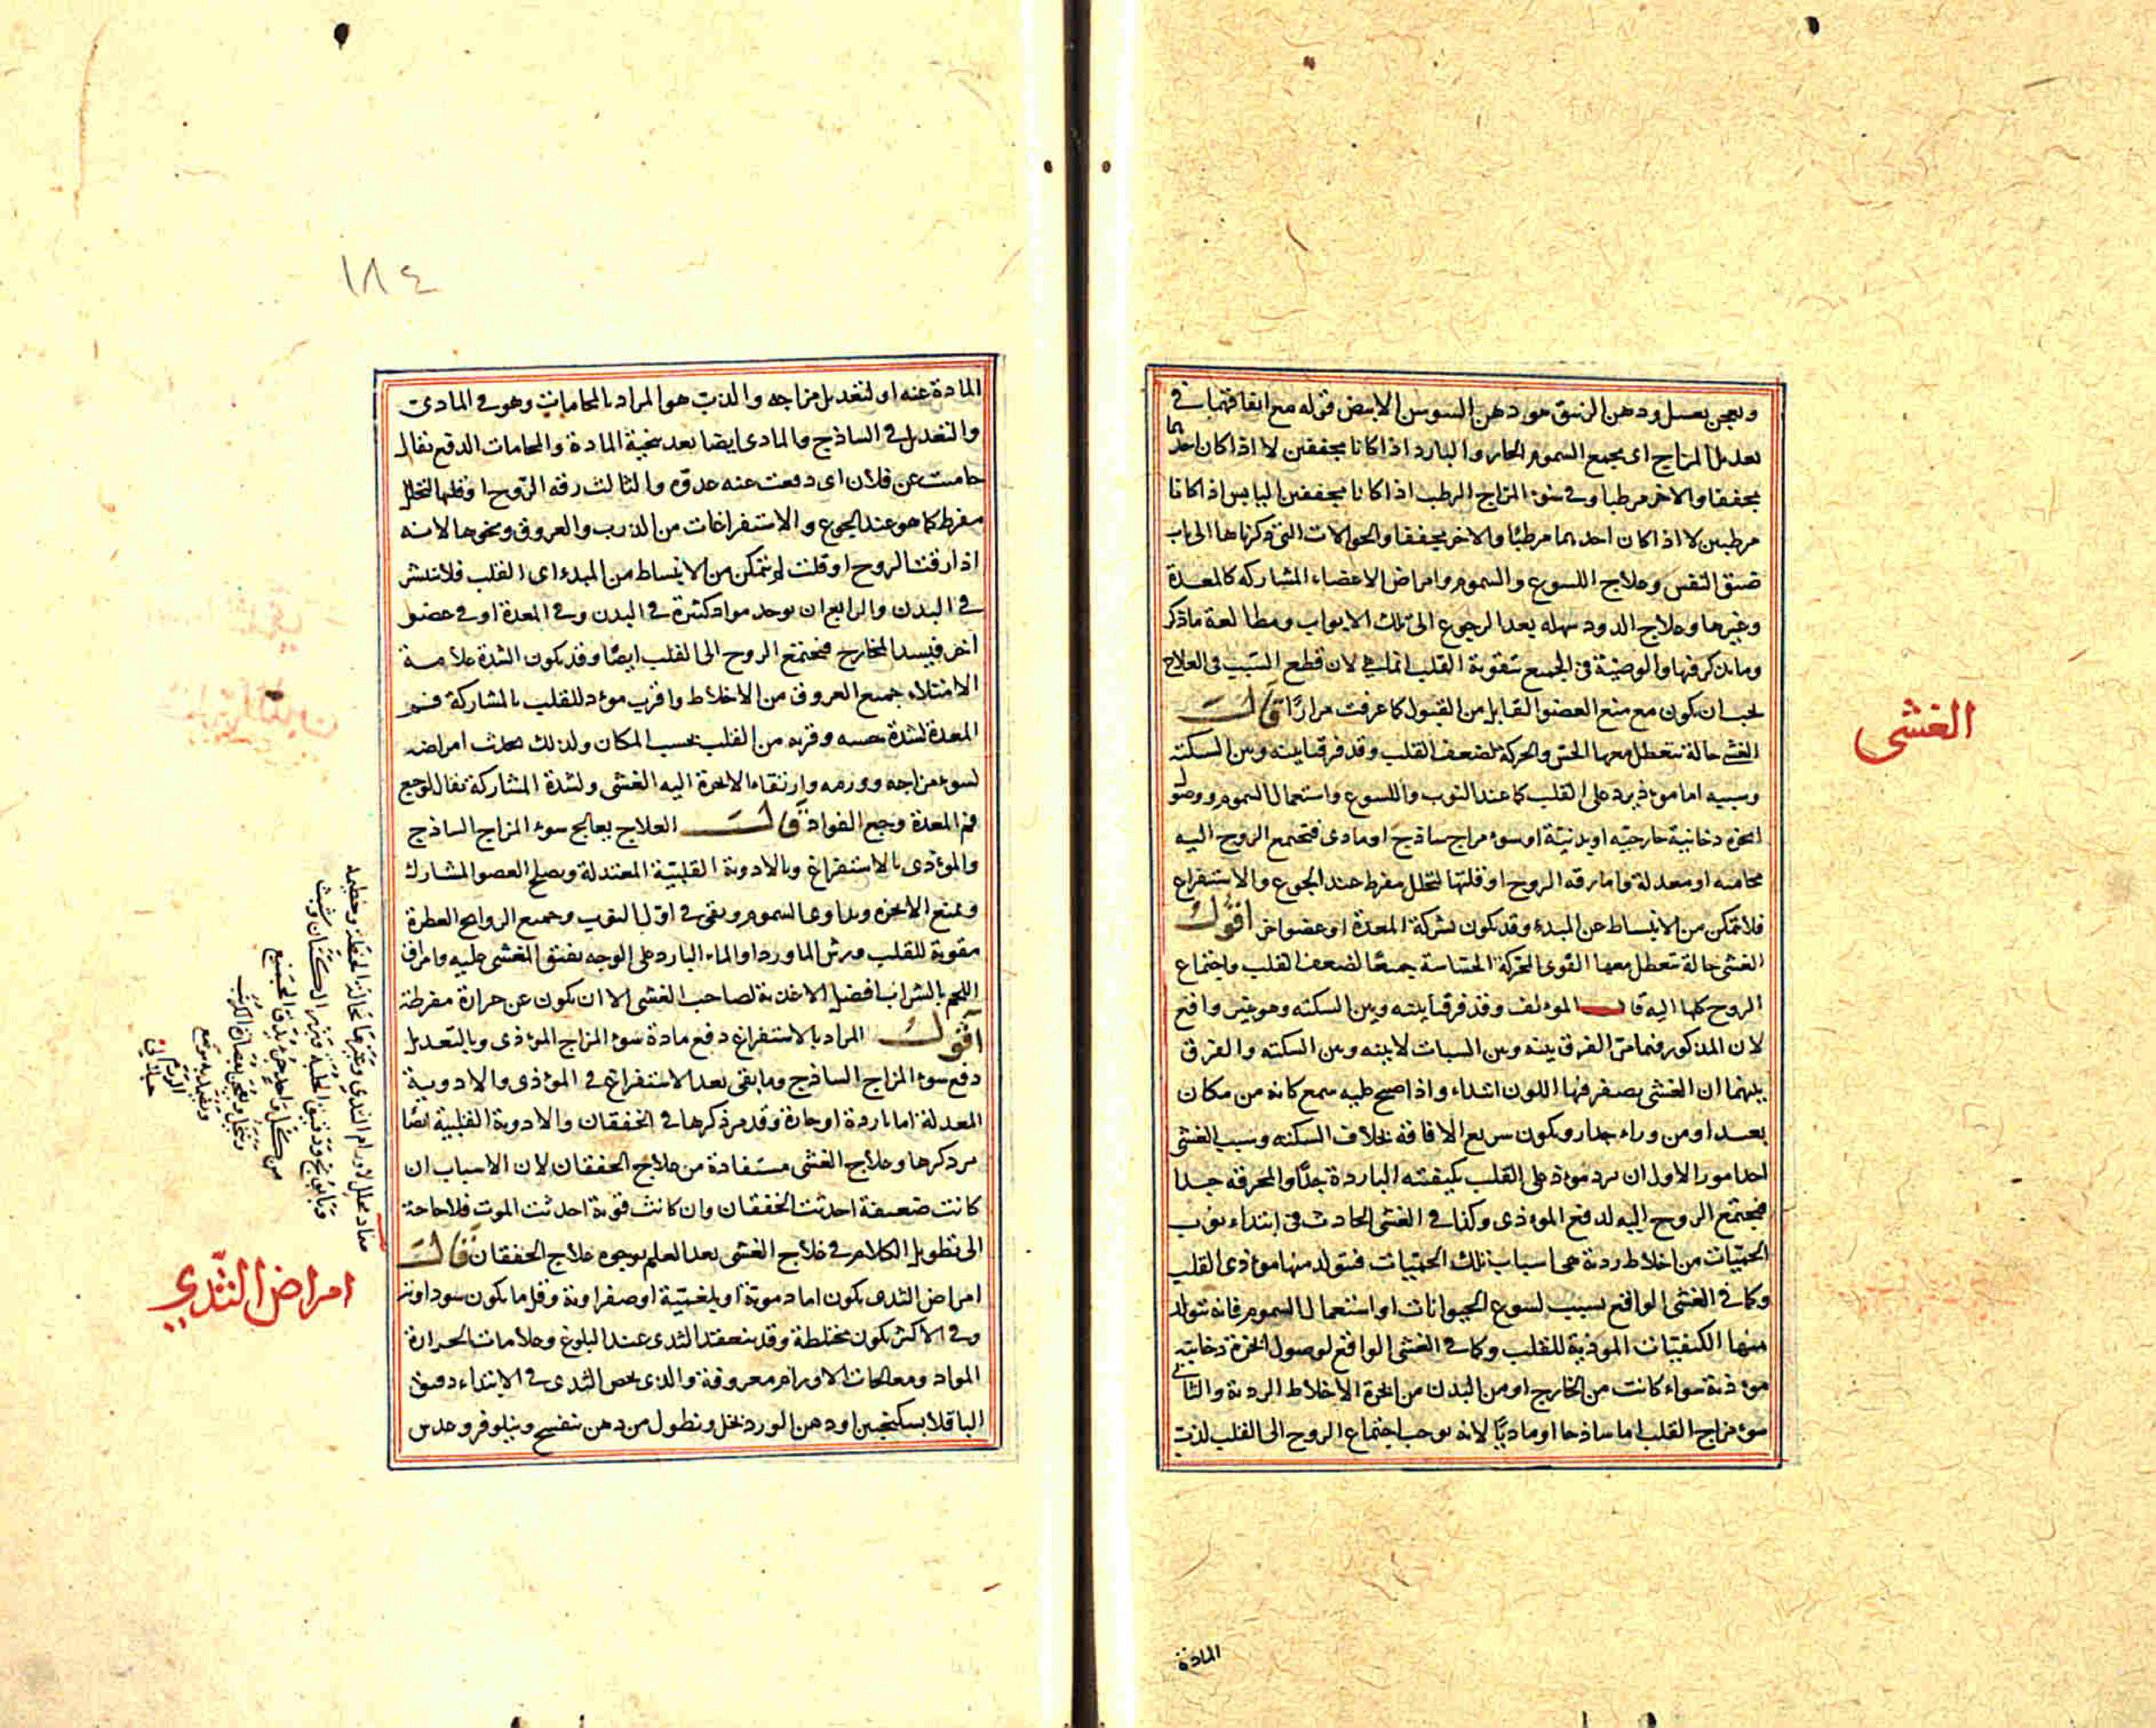 ويعجن بعسل ودهن الزنبق هو دهن السوسن الابيض قوله مع اتفاقهما في
تعديل المزاج اى يجمع السموم الحار والبارد اذا كانا مجففين لا اذا كان احدهما
مجففا والاخر مرطبا وفي سوء المزاج الرطب اذا كانا مجففين اليابس اذا كانا
مرطبين لا اذا كان احدهما مرطبا والاخر مجففا والحوالات التى ذكرناها الى باب
ضيق النفس وعلاج اللسوع والسموم وامراض الاعضاء المشاركه كالمعدة
وغيرها وعلاج الدود سهله بعد الرجوع الى تلك الابواب ومطالعة ما ذكر
وما يذكر فيها والوصية في الجميع بتقوية القلب انما هي لان قطع السبب في العلاج
يجب ان يكون مع منع العضو القابل من القبول كما عرفت مرارًا قالت
الغشى حالة تتعطل معها الحس والحركة لضعف القلب وقد فرقنا بينه وبين السكتة
وسببه اما موءذ يرد على القلب كما عند النوب واللسوع واستعمال السموم ووصول
ابخرة دخانية خارجيه او بدنية او سوء مزاج ساذج او مادى فتجتمع الروح اليه
محامية او معدلة واما رقه الروح او قلتها لتحلل مفرط عند الجوع والاستفراغ
فلا تمكن من الانبساط عن المبدء وقد يكون لشركة المعدة او عضو اخر اقول
الغشى حالة تتعطل معها القوى المحركة الحساسة جميعًا لضعف القلب واجتماع
الروح كلها اليه قال الموءلف وقد فرقنا بينه وبين السكته وهو غير واقع
لان المذكور فيما مر الفرق بينه وبين السبات لا بينه وبين السكته والفرق
بينهما ان الغشى يصفر فيها اللون ابتداء واذا صيح عليه سمع كانه من مكان
بعيد او من وراء جدار ويكون سريع الافاقه بخلاف السكته وسبب الغشى
احد امور الاول ان يرد موءذ على القلب بكيفيته الباردة جدًا والمحرقه جدا
فيجتمع الروح اليه لدفع الموءذى وكذا في الغشى الحادث في ابتداء نوب
الحميات من اخلاط ردية هى اسباب تلك الحميات فتولد منها موءذى القلب
وكما في الغشى الواقع بسبب لسوع الحيوانات او استعمال السموم فانه يتولد
منها الكيفيات الموذية للقلب وكما في الغشى الواقع لوصول ابخرة دخانية
موءذية سواء كانت من الخارج او من البدن من ابخرة الاخلاط الردية والثانى
سوء مزاج القلب اما ساذجا او ماديًا لانه يوجب اجتماع الروح الى القلب لذب
المادة
الغشى
١٨٤
المادة عنه او لتعديل مزاجه والذب هو المراد بالمحامات وهو في المادى
والتعديل في الساذج والمادى ايضا بعد تنحية المادة والمحامات الدفع يقال
حاميت عن فلان اى دفعت عنه عدوه والثالث رقه الروح او قلتها لتحلل
مفرط كما هو عند الجوع والاستفراغات من الذرب والعروق ونحوها لانه
اذا رقت الروح او قلت لم تتمكن من الانبساط من المبدء اى القلب فلا تنتشر
في البدن والرابع ان يوجد مواد كثيرة في البدن وفي المعدة او في عضو
اخر فيسد المخارج فتجتمع الروح الى القلب ايضًا وقد يكون الشدة علامة
الامتلاء جميع العروق من الاخلاط واقرب موءذ للقلب بالمشاركة فم
المعدة لشدة حسه وقربه من القلب بحسب المكان ولذلك يحدث امراضه
لسوء مزاجه وورمه وارتقاء الابخرة اليه الغشى ولشدة المشاركة يقال لوجع
فم المعدة وجع الفواد قالت العلاج يعالج سوء المزاج الساذج
والموءذى بالاستفراغ وبالادوية القلبية المعتدلة ويصلح العضو المشارك
ويمنع الابخره ويداوى السموم ويقى في اول النوب وجميع الروايح العطرة
مقوية للقلب ورش الماورد او الماء البارد على الوجه يفيق المغشى عليه وامراق
اللحم بالشراب افضل الاغذية لصاحب الغشى الا ان يكون عن حرارة مفرطة
اقول المراد بالاستفراغ دفع مادة سوء المزاج الموءذى وبالتعديل
دفع سوء المزاج الساذج وما بقى بعد الاستفراغ في الموءذى والادوية
المعدلة اما باردة او حارة وقد مر ذكرها في الخفقان والادوية القلبية ايضًا
مر ذكرها وعلاج الغشى مستفادة من علاج الخفقان لان الاسباب ان
كانت ضعيفة احدثت الخفقان وان كانت قوية احدثت الموت فلا حاجة
الى تطويل الكلام في علاج الغشى بعد العلم بوجوه علاج الخفقان قالت
امراض الثدى يكون اما دموية او بلغمية او صفراوية وقل ما يكون سوداوية
وفي الاكثر يكون مختلطة وقد ينعقد الثدى عند البلوغ وعلامات الحرارة
المواد ومعالجات الاورام معروفة والذى يخص الثدى في الابتداء دقيق
الباقلا بسكنجبين او دهن الورد بخل ونطول من دهن بنفسج ونيلوفر وعدس
امراض الثّدي
ضماد محلل لاورام الثدي وغيرها نخالة الحنطة وخطمية
وبابونج ودقيق الحلبة وبزر الكتّان وشبث
من كل واحد جزء يدق الجميع
وينخل ويعجن بعصارة الكرنب
ويضمد به موضع
الورم